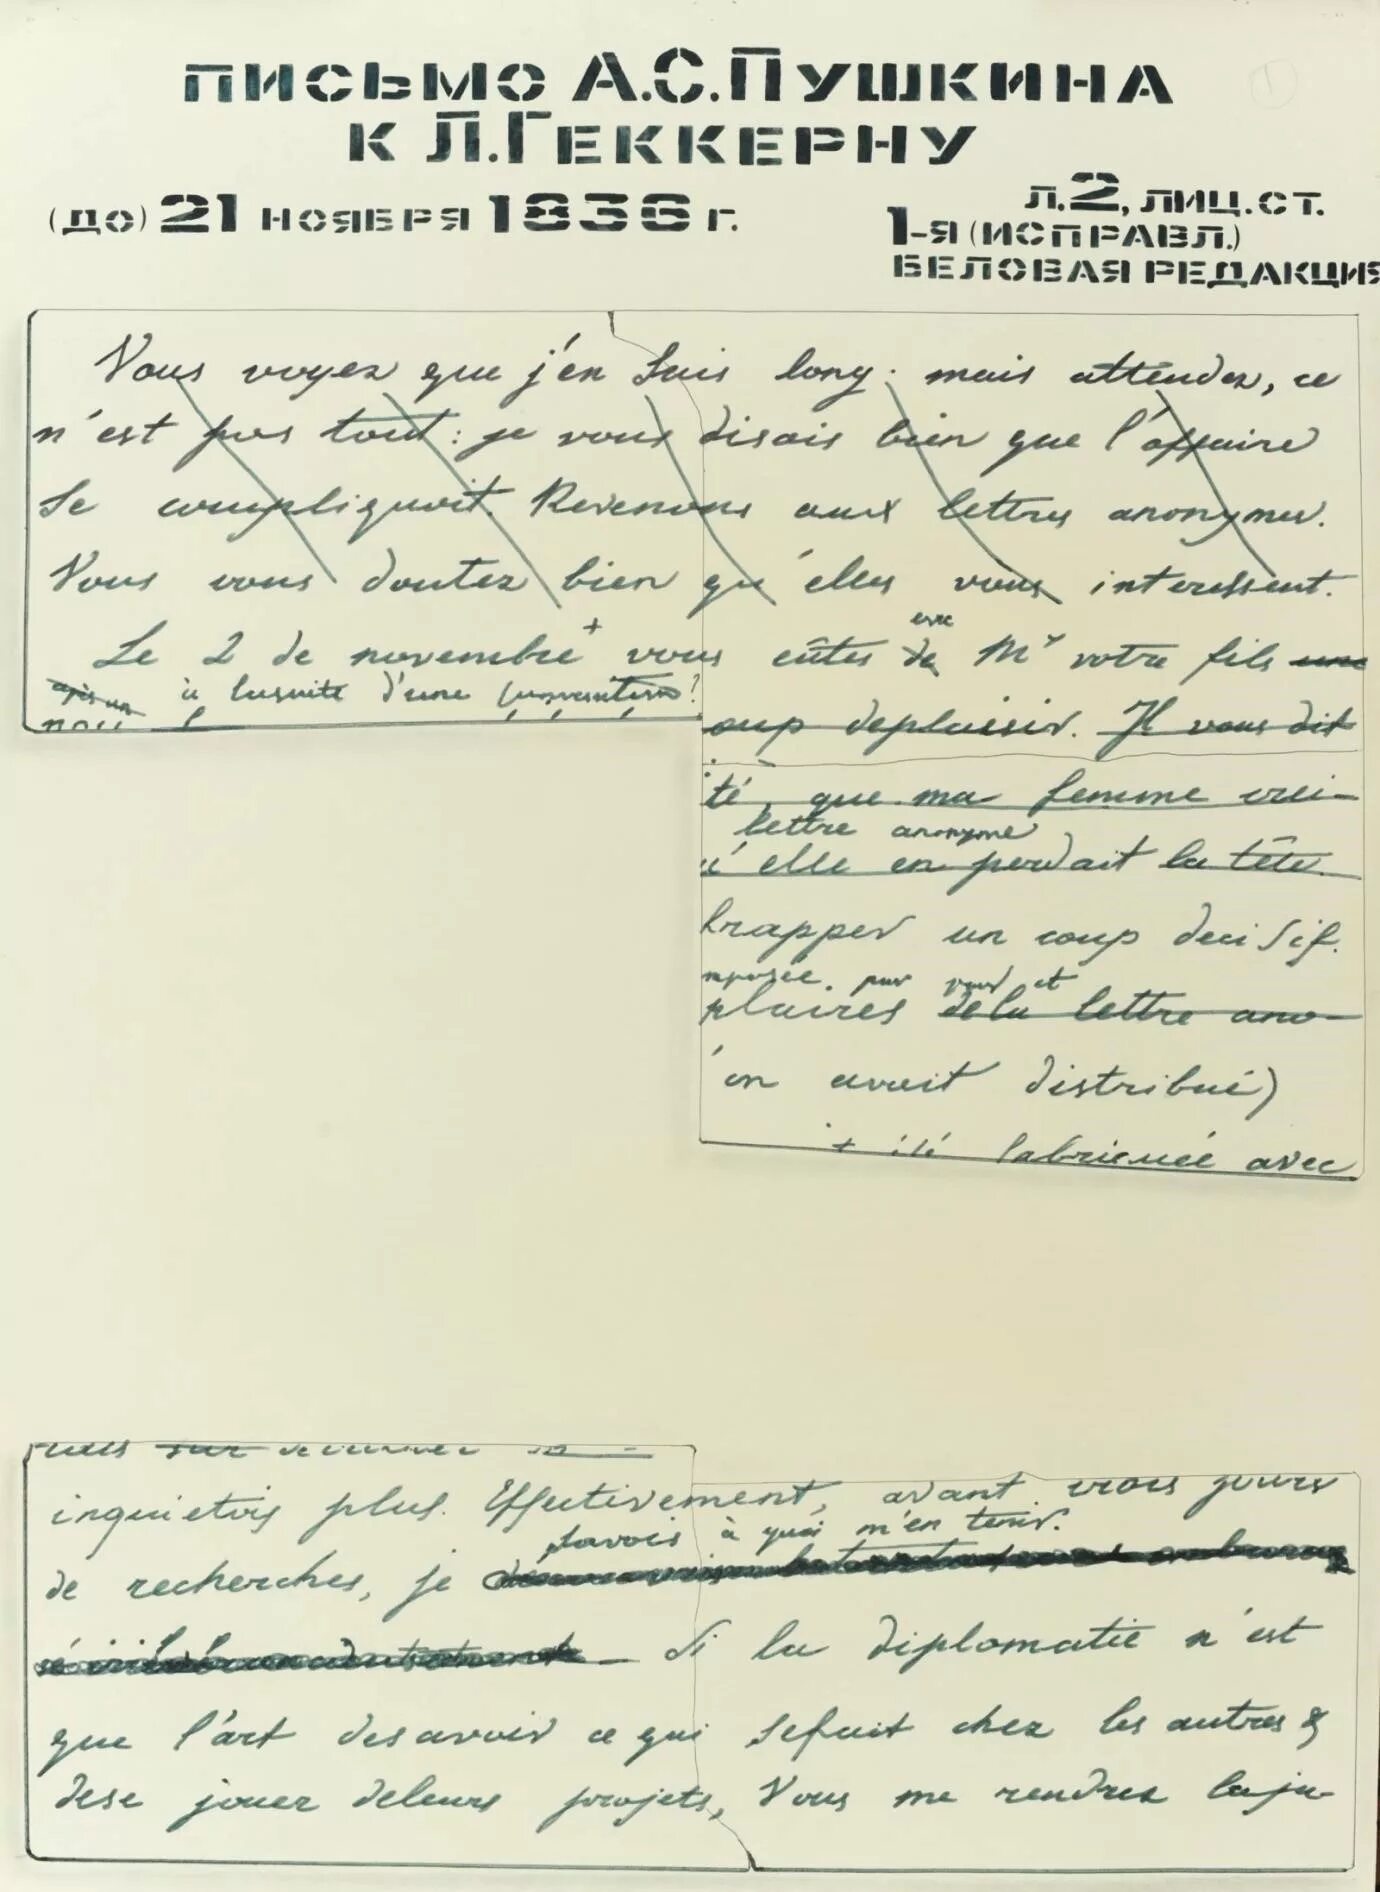 ПИСЬМО А.С.ПУШКИНА
К Л.ГЕККЕРНУ
(ДО) 21 НОЯБРЯ 1836 Г.
Л.2, ЛИЦ.СТ.
1-Я (ИСПРАВЛ.)
БЕЛОВАЯ РЕДАКЦИЯ
1
Vous voyez que j'en suis long. mais attendez, ce
n'est pas tout: je vous disais bien que l'affaire
se compliquoit. Revenons aux lettres anonymes.
Vous vous doutez bien qu'elles vous interessent.
eue
Le 2 de novembre + vous eûtes de Mr votre fils une
après un à lasuite d'une conversation?
oup deplaisir. Il vous dit
té, que ma femme crai-
lettre anonyme
u'elle en perdait la tête.
frapper un coup decisif.
mposée par vous et
plaires dela lettre ano-
'on avait distribué)
+ été fabriquée avec
inquietois plus. Effectivement, avant trois jours
savois à quoi m'en tenir.
de recherches, je
Si la diplomatie n'est
que l'art desavoir ce qui sefait chez les autres &
dese jouer deleurs projets, Vous me rendrez laju-